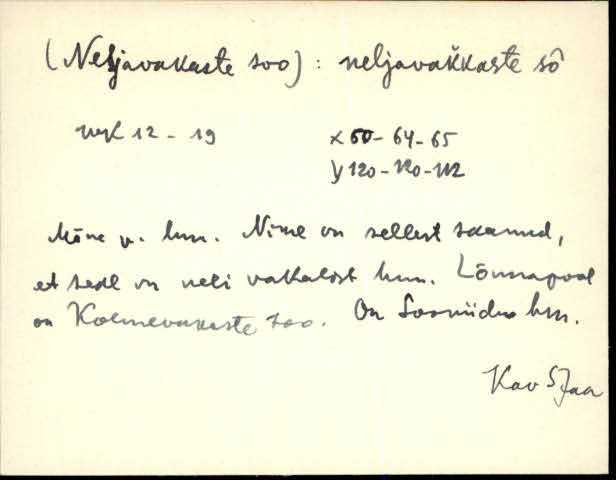 (Neljavakaste soo): neljavakkaste sô
12 - 19 x 60 - 64 - 65
y 120 - 120 - 112
Mõne v. hm. Nime on sellest saanud,
et seal on neli vakalist hm. Lõunapool
on Kolmevakaste soo. On Sooniidu hm.
Kav SJaa